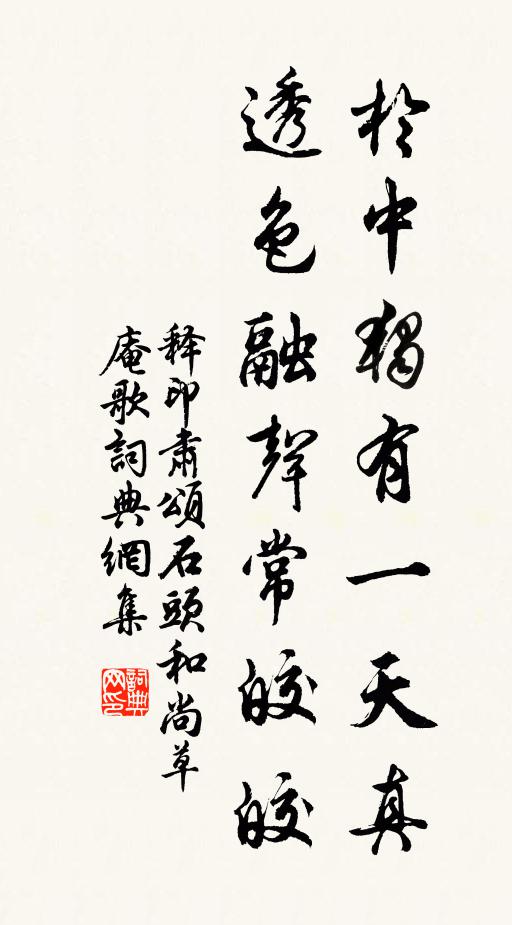 於中獨有一天真
透色融聲常皎皎
释印肃頌石頭和尚草
庵歌詞典網集
詞典网印